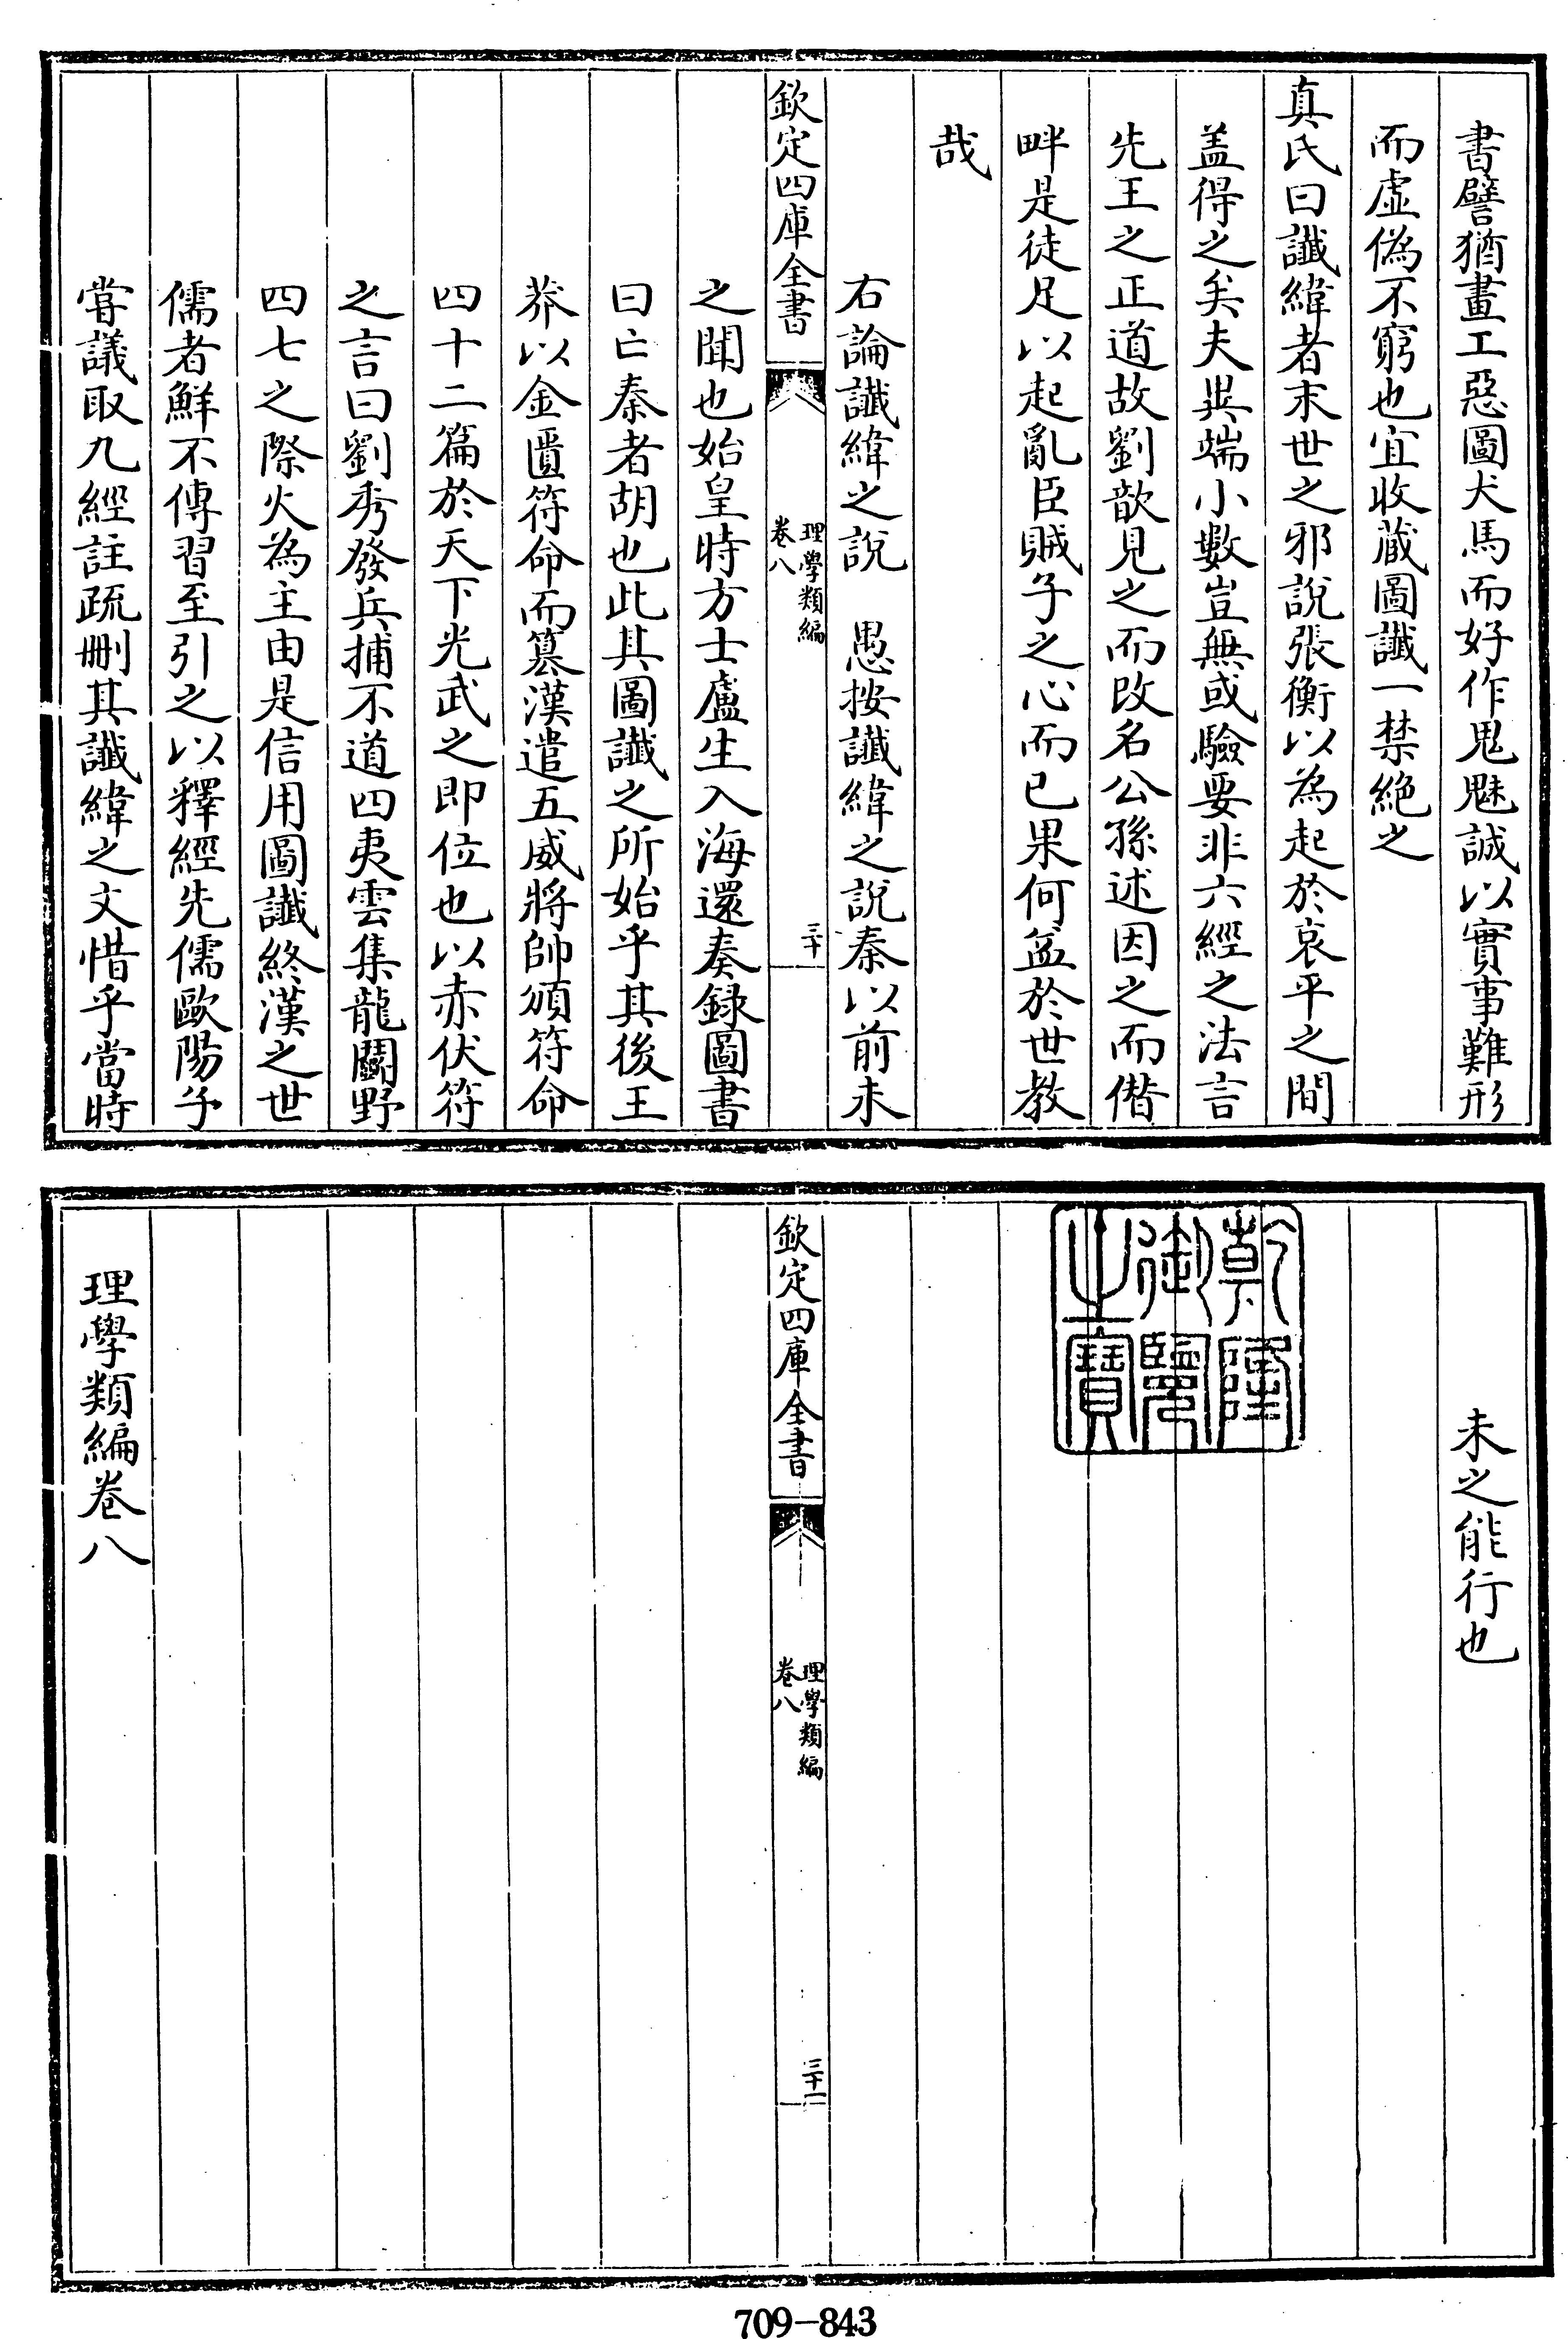 書譬猶畫工惡圖犬馬而好作鬼魅誠以實事難形
而虛偽不窮也宜收藏圖讖一禁絕之
真氏曰讖緯者末世之邪說張衡以為起於哀平之間
盖得之矣夫異端小數豈無或驗要非六經之法言
先王之正道故劉歆見之而改名公孫述因之而僭
畔是徒足以起亂臣賊子之心而已果何益於世教
哉
右論讖緯之說　愚按讖緯之說秦以前未
欽定四庫全書
理學類編
卷八
三十
之聞也始皇時方士盧生入海還奏録圖書
曰亡秦者胡也此其圖讖之所始乎其後王
莽以金匱符命而篡漢遣五威將帥頒符命
四十二篇於天下光武之即位也以赤伏符
之言曰劉秀發兵捕不道四夷雲集龍鬭野
四七之際火為主由是信用圖讖終漢之世
儒者鮮不傳習至引之以釋經先儒歐陽子
嘗議取九經註疏刪其讖緯之文惜乎當時
未之能行也
乾隆
御覽
之寶
欽定四庫全書
理學類編
卷八
三十一
理學類編卷八
709-843